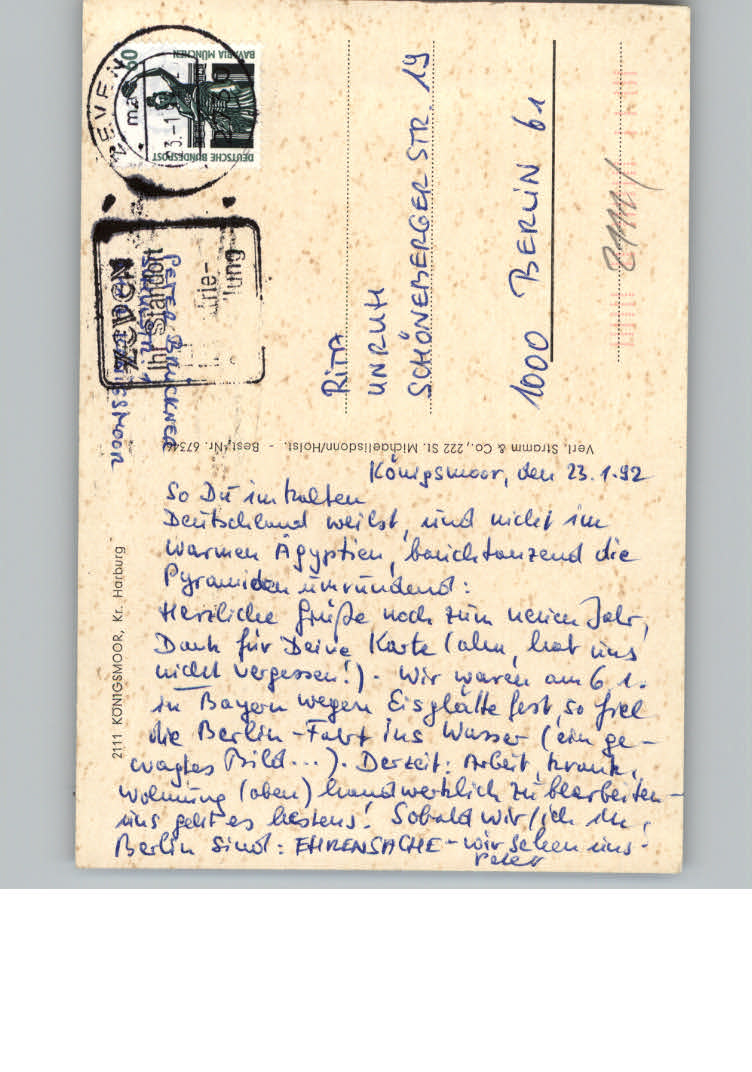 Königsmoor, den 23.1.92
So Du im kalten
Deutschland weilst, und nicht im
warmen Ägyptien, bauchtanzend die
Pyramiden umrundend:
Herzliche Grüße noch zum neuen Jahr,
Dank für Deine Karte (aha, hat uns
nicht vergessen!). Wir waren am 6.1.
in Bayern wegen Eisglätte fest, so fiel
die Berlin-Fahrt ins Wasser (ein ge-
wagtes Bild...). Derzeit: Arbeit, krank,
Wohnung (oben) handwerklich zu bearbeiten -
uns geht es bestens! Sobald wir/ich in
Berlin sind: EHRENSACHE - wir sehen uns.
Peter
RITA
UNRUH
SCHÖNEBERGER STR. 19
1000 BERLIN 61
PETER BRÜCKNER
KÖNIGSMOOR
2111 KÖNIGSMOOR, Kr. Harburg
Verl. Stramm & Co., 222 St. Michaelisdonn/Holst. - Best.-Nr. 67346
DEUTSCHE BUNDESPOST
60
BAVARIA MÜNCHEN
ZEVEN
ma
ZEVEN
Ihr Standort